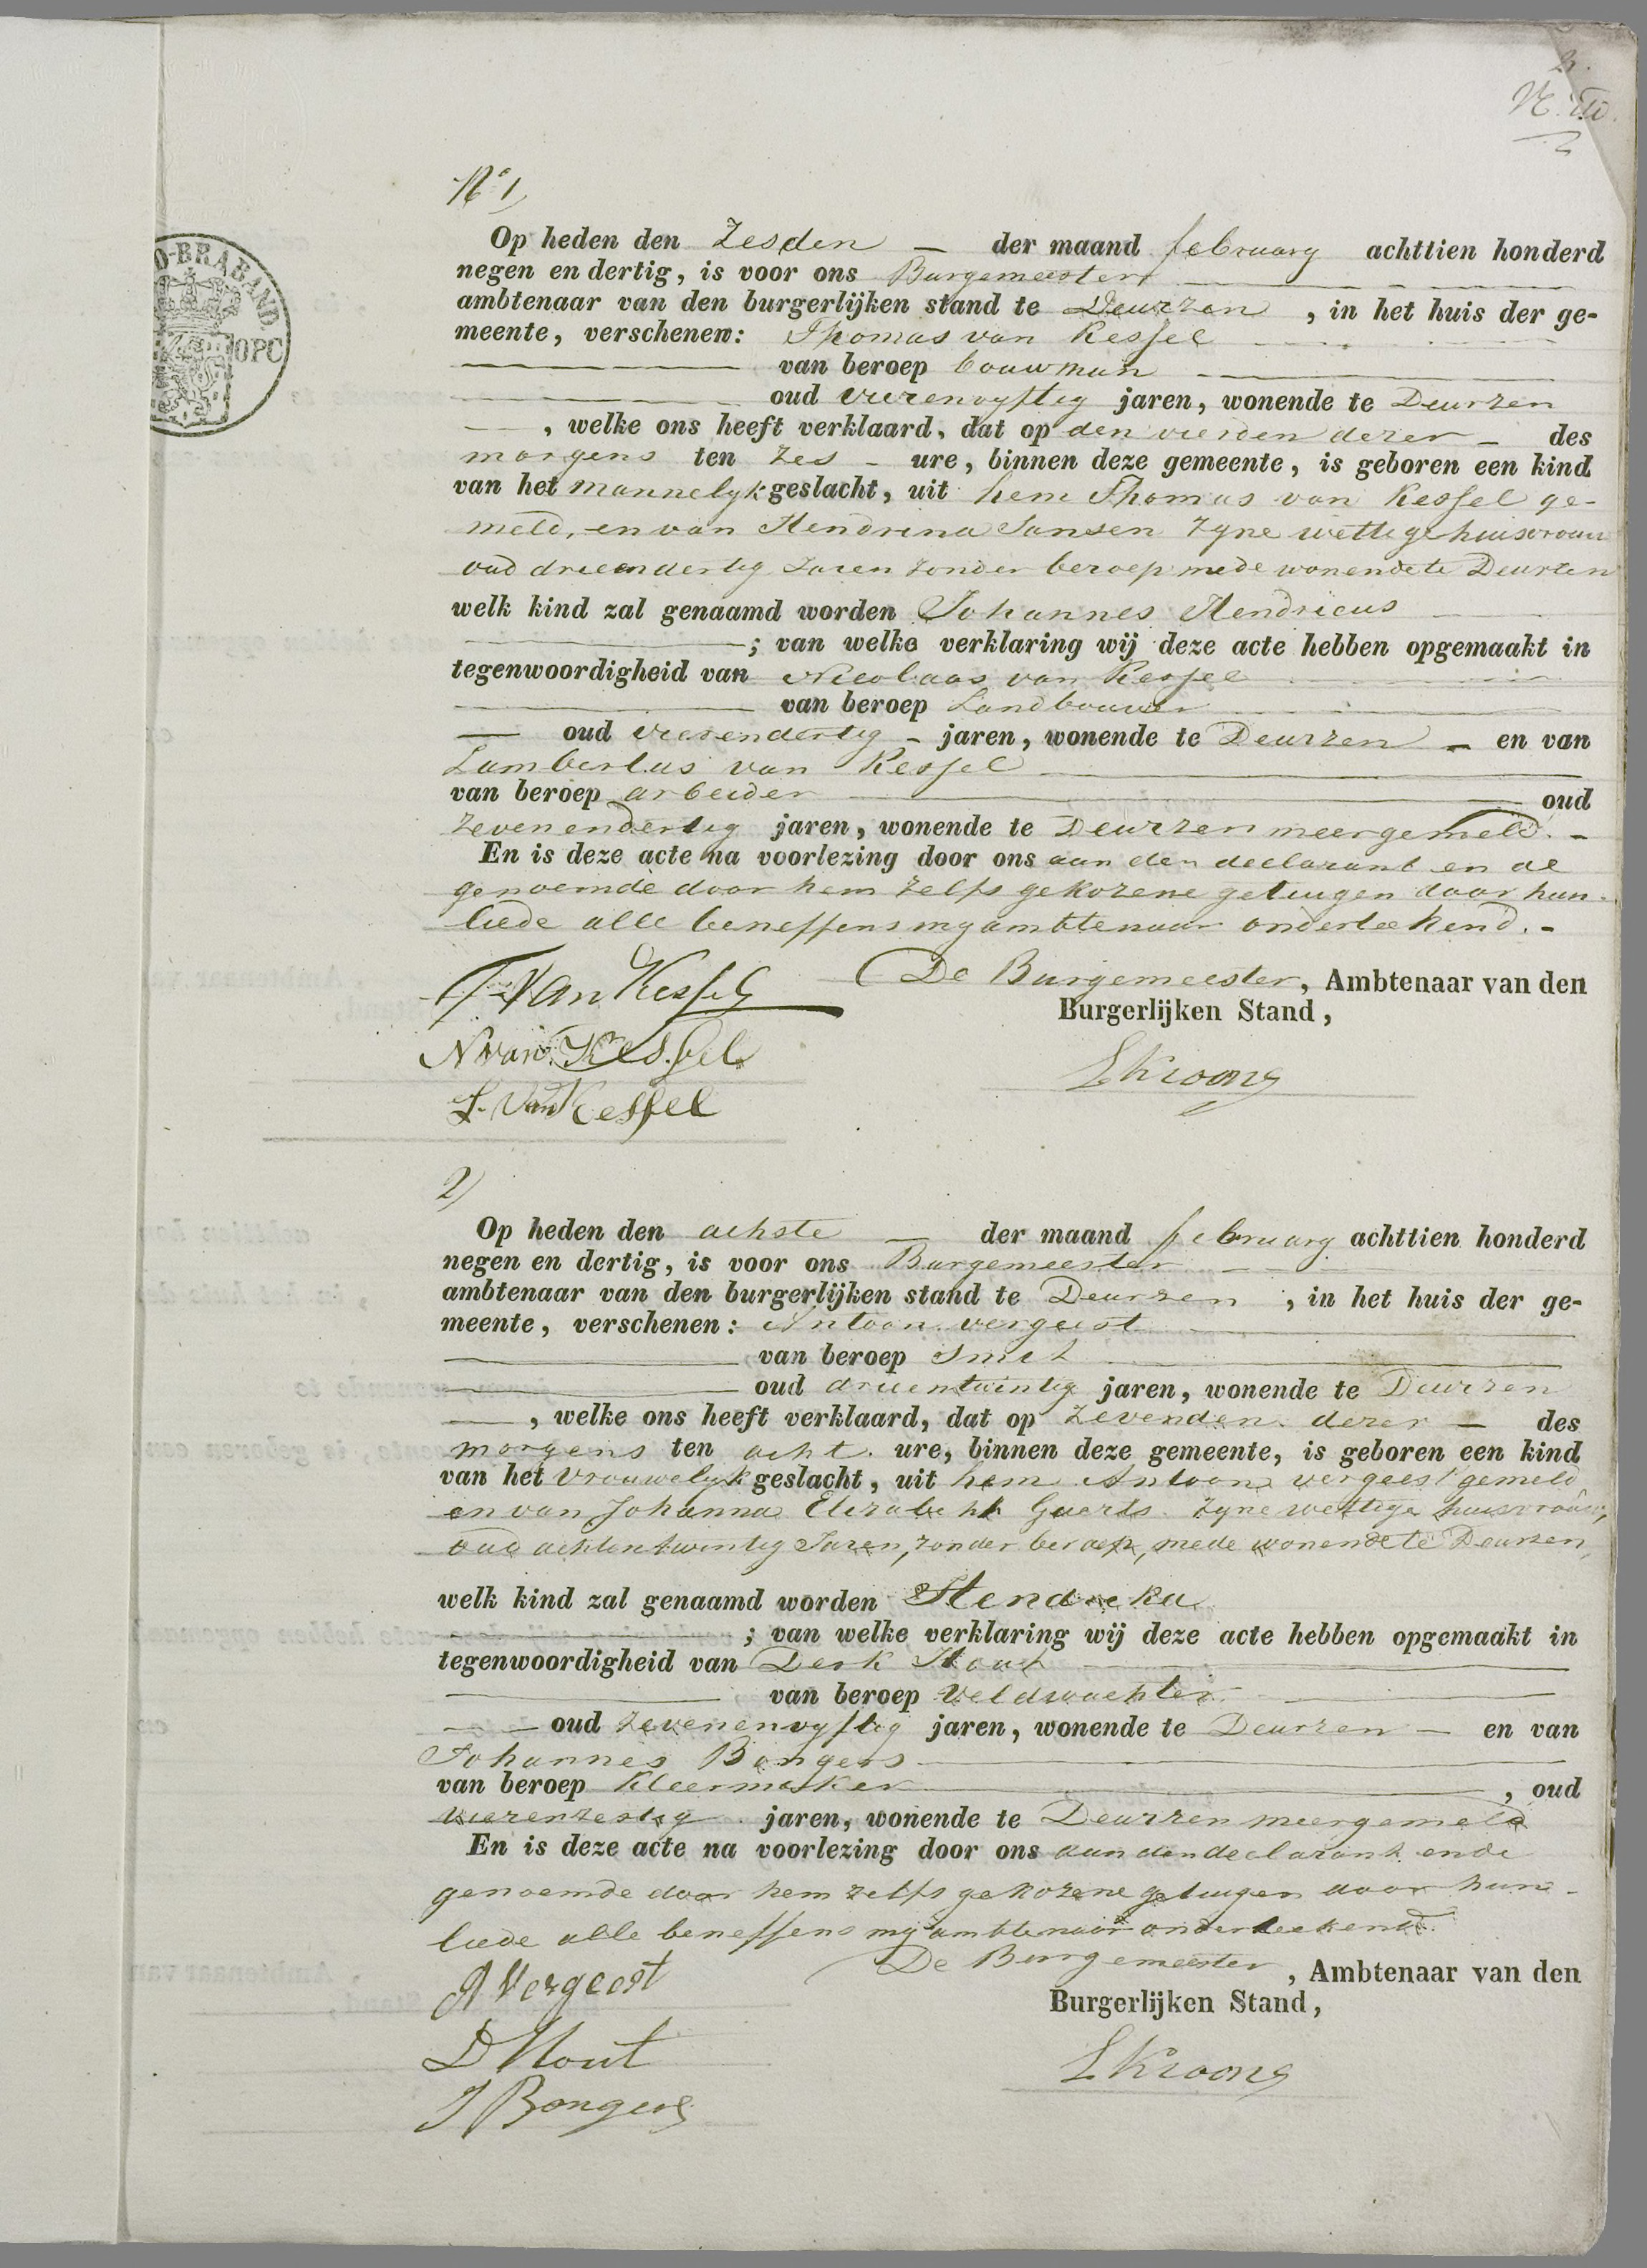 2.
D-BRABAND.
OPC
No 1)
Op heden den Zesden — der maand february achttien honderd
negen en dertig, is voor ons Burgemeester
ambtenaar van den burgerlijken stand te Deurzen , in het huis der ge-
meente, verschenen: Thomas van Kessel
van beroep bouwman
oud vierenvyftig jaren, wonende te Deurzen
, welke ons heeft verklaard, dat op den vierden dezer — des
morgens ten zes — ure, binnen deze gemeente, is geboren een kind
van het mannelyk geslacht, uit hem Thomas van Kessel ge-
meld, en van Hendrina Jansen zyne wettige huisvrouw
oud drieendertig Jaren zonder beroep mede wonende te Deurzen
welk kind zal genaamd worden Johannes Hendricus
; van welke verklaring wij deze acte hebben opgemaakt in
tegenwoordigheid van Nicolaas van Kessel
van beroep Landbouwer
oud vierendertig — jaren, wonende te Deurzen — en van
Lambertus van Kessel
van beroep arbeider oud
zevenendertig jaren, wonende te Deurzen meergemeld. —
En is deze acte na voorlezing door ons aan den declarant en de
genoemde door hem zelfs gekozene getuigen door hun-
liede alle beneffens my ambtenaar onderteekend. —
T. van Kessel De Burgemeester, Ambtenaar van den
Burgerlijken Stand,
N van Kessel
L Kroons
L. van Kessel
2)
Op heden den achste — der maand february achttien honderd
negen en dertig, is voor ons Burgemeester
ambtenaar van den burgerlijken stand te Deurzen , in het huis der ge-
meente, verschenen: Antoon vergeest
van beroep Smit
oud drieentwintig jaren, wonende te Deurzen
, welke ons heeft verklaard, dat op zevenden dezer — des
morgens ten acht ure, binnen deze gemeente, is geboren een kind
van het vrouwelyk geslacht, uit hem Antoon vergeest gemeld
en van Johanna Elizabeth Geerts zyne wettige huisvrouw,
oud achtentwintig Jaren, zonder beroep, mede wonende te Deurzen,
welk kind zal genaamd worden Hendrika
; van welke verklaring wij deze acte hebben opgemaakt in
tegenwoordigheid van Derk Hout
van beroep Veldwachter
oud zevenenvyftig jaren, wonende te Deurzen — en van
Johannes Bongers
van beroep Kleermaker , oud
vierenzestig jaren, wonende te Deurzen meergemeld
En is deze acte na voorlezing door ons aan den declarant en de
genoemde door hem zelfs gekozene getuigen door hun-
liede alle beneffens my ambtenaar onderteekend.
A Vergeest De Burgemeester , Ambtenaar van den
Burgerlijken Stand,
D Hout
L Kroons
J Bongers